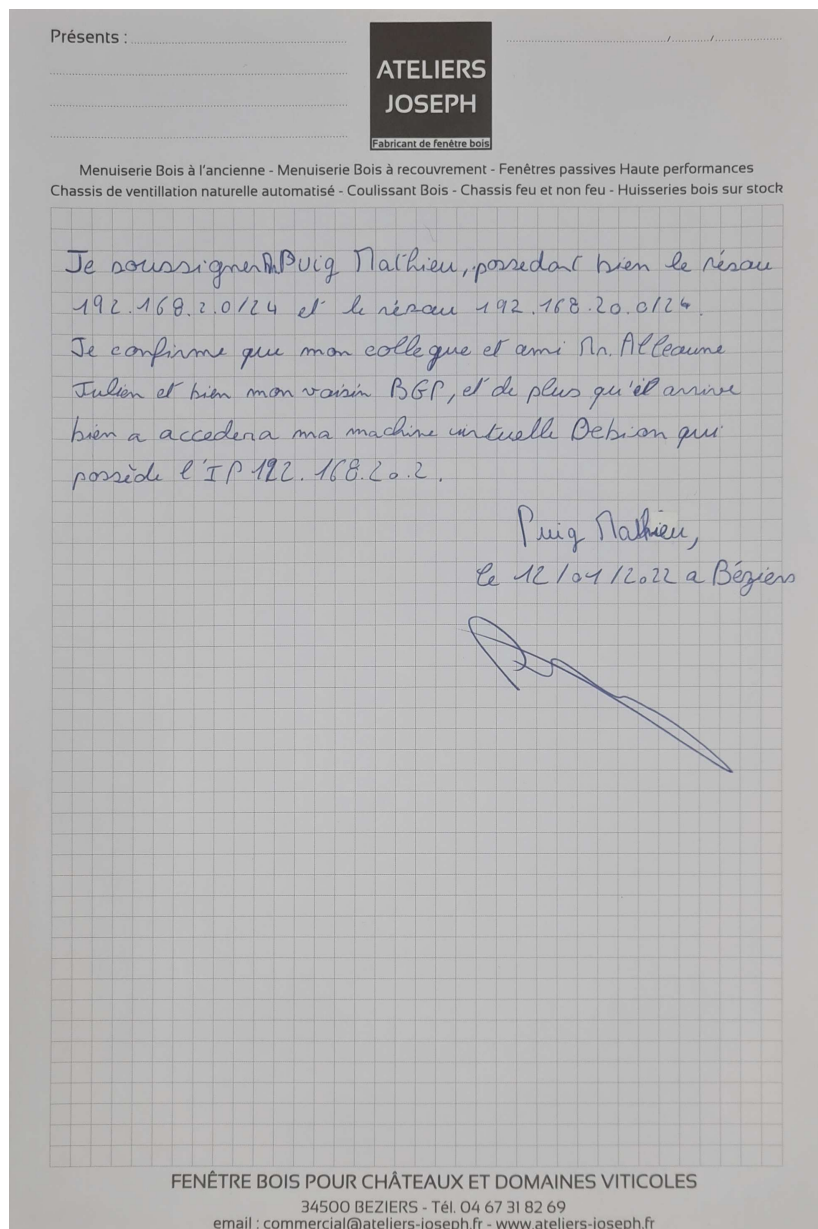 Présents :
/ /
ATELIERS
JOSEPH
Fabricant de fenêtre bois
Menuiserie Bois à l'ancienne - Menuiserie Bois à recouvrement - Fenêtres passives Haute performances
Chassis de ventillation naturelle automatisé - Coulissant Bois - Chassis feu et non feu - Huisseries bois sur stock
Je soussigner Puig Mathieu, possedant bien le résau
192.168.2.0/24 et le résau 192.168.20.0/24.
Je confirme que mon collegue et ami Mr. Alleaume
Julien et bien mon voisin BGP, et de plus qu'il arrive
bien a accedera ma machine virtuelle Debian qui
possède l'IP 192.168.20.2.
Puig Mathieu,
le 12/01/2022 a Béziers
FENÊTRE BOIS POUR CHÂTEAUX ET DOMAINES VITICOLES
34500 BEZIERS - Tél. 04 67 31 82 69
email : commercial@ateliers-joseph.fr - www.ateliers-joseph.fr